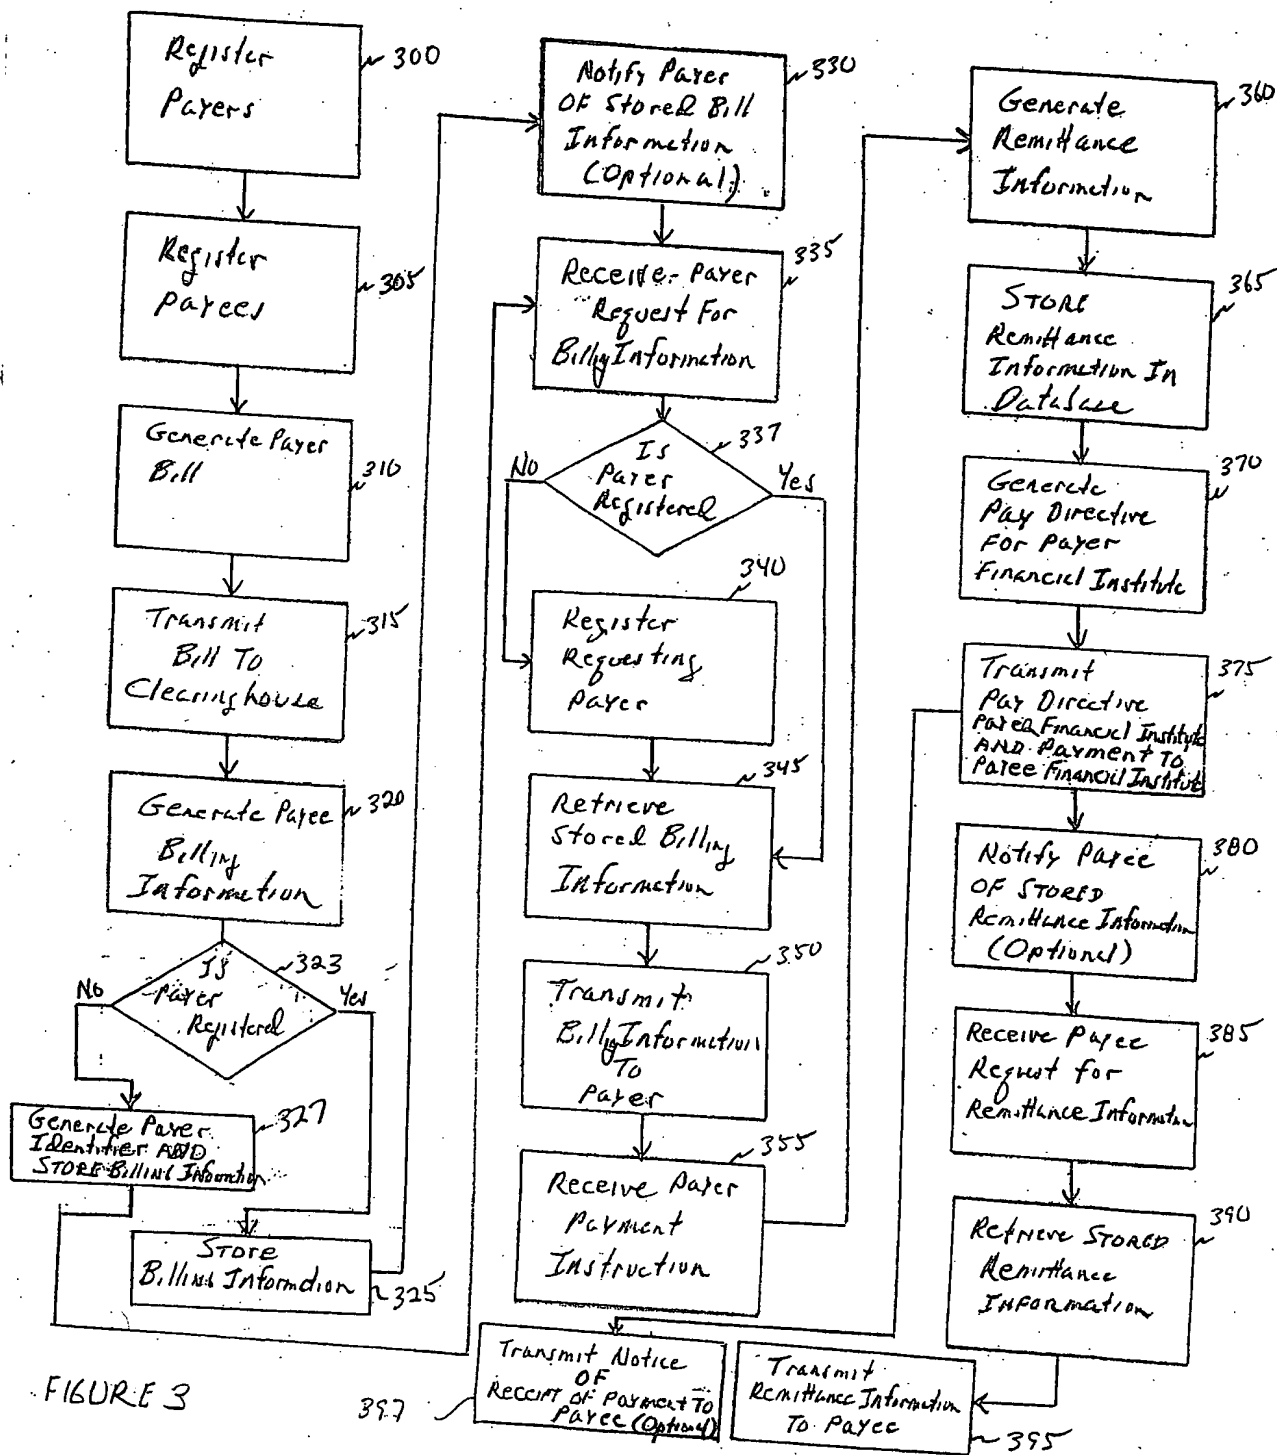 Register
Payers
300
Register
Payees
305
Generate Payer
Bill
310
Transmit
Bill To
Clearinghouse
315
Generate Payee
Billing
Information
320
Is
Payer
Registered
323
No
Yes
Generate Payer
Identifier AND
STORE Billing Information
327
Store
Billing Information
325
Notify Payer
OF Stored Bill
Information
(Optional)
330
Receive Payer
Request For
Billing Information
335
Is
Payer
Registered
337
No
Yes
Register
Requesting
Payer
340
Retrieve
Stored Billing
Information
345
Transmit
Billing Information
To
Payer
350
Receive Payer
Payment
Instruction
355
Generate
Remittance
Information
360
STORE
Remittance
Information In
Database
365
Generate
Pay Directive
For Payer
Financial Institute
370
Transmit
Pay Directive
Financial Institute
AND Payment To
Payee Financial Institute
375
Notify Payee
OF STORED
Remittance Information
(Optional)
380
Receive Payee
Request for
Remittance Information
385
Retrieve STORED
Remittance
INFORMATION
390
Transmit Notice
OF
RECEIPT OF PAYMENT TO
Payee (Optional)
397
Transmit
Remittance Information
To Payee
395
FIGURE 3